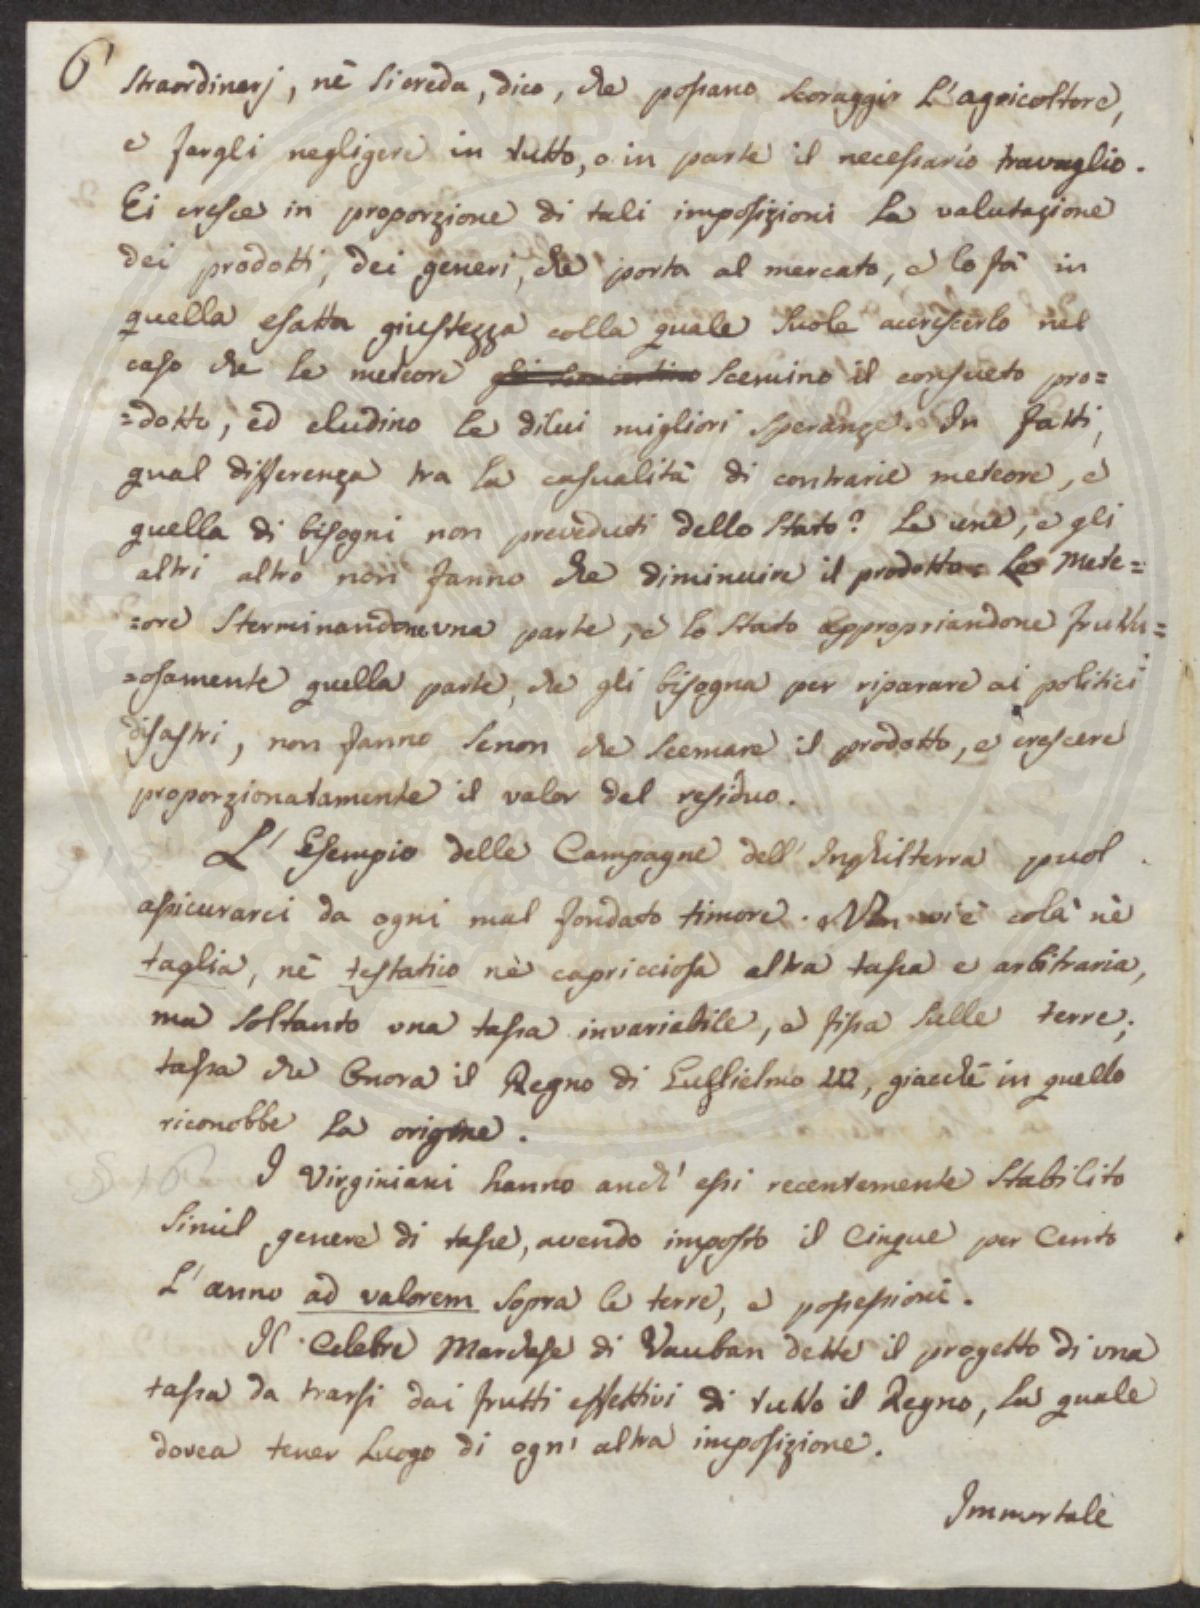 6
straordinarj, nè si creda, dico, che possano scoraggir l'agricoltore,
e fargli negligere in tutto, o in parte il necessario travaglio.
Ei cresce in proporzione di tali imposizioni la valutazione
dei prodotti, dei generi, che porta al mercato, e lo fà in
quella esatta giustezza colla quale suole accrescerlo nel
caso che le meteore scemino il consueto pro=
=dotto, ed eludino le dilui migliori speranze. In fatti,
qual differenza tra la casualità di contrarie meteore, e
quella di bisogni non preveduti dello Stato? Le une, e gli
altri altro non fanno che diminuire il prodotto= Le Mete=
=ore sterminandone una parte, e lo Stato appropriandone fruttu=
=osamente quella parte, che gli bisogna per riparare ai politici
disastri, non fanno senon che scemare il prodotto, e crescere
proporzionatamente il valor del residuo.
L'Esempio delle Campagne dell'Inghilterra puol
assicurarci da ogni mal fondato timore. Non vi è colà nè
taglia, nè testatico nè capricciosa altra tassa e arbitraria,
ma soltanto una tassa invariabile, e fissa sulle terre;
tassa che Onora il Regno di Guglielmo III, giacchè in quello
riconobbe la origine.
§ 16
I Virginiani hanno anch'essi recentemente stabilito
simil genere di tasse, avendo imposto il Cinque per Cento
l'anno ad valorem sopra le terre, e possessioni.
Il Celebre Marchese di Vauban dette il progetto di una
tassa da trarsi dai frutti effettivi di tutto il Regno, la quale
dovea tener luogo di ogni altra imposizione.
Immortale